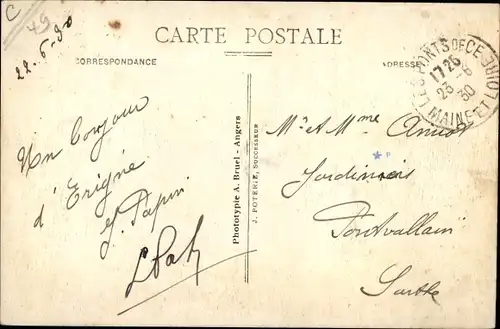 C
49
22-6-30
CARTE POSTALE
CORRESPONDANCE
ADRESSE
LES PONTS DE CÉ
17 25
23 - 6
30
MAINE ET LOIRE
Un bonjour
d'Erigné
Papin
Phototypie A. Bruel - Angers
J. POTERIE, SUCCESSEUR
Mr et Mme
Jardiniers
Pontvallain
Sarthe